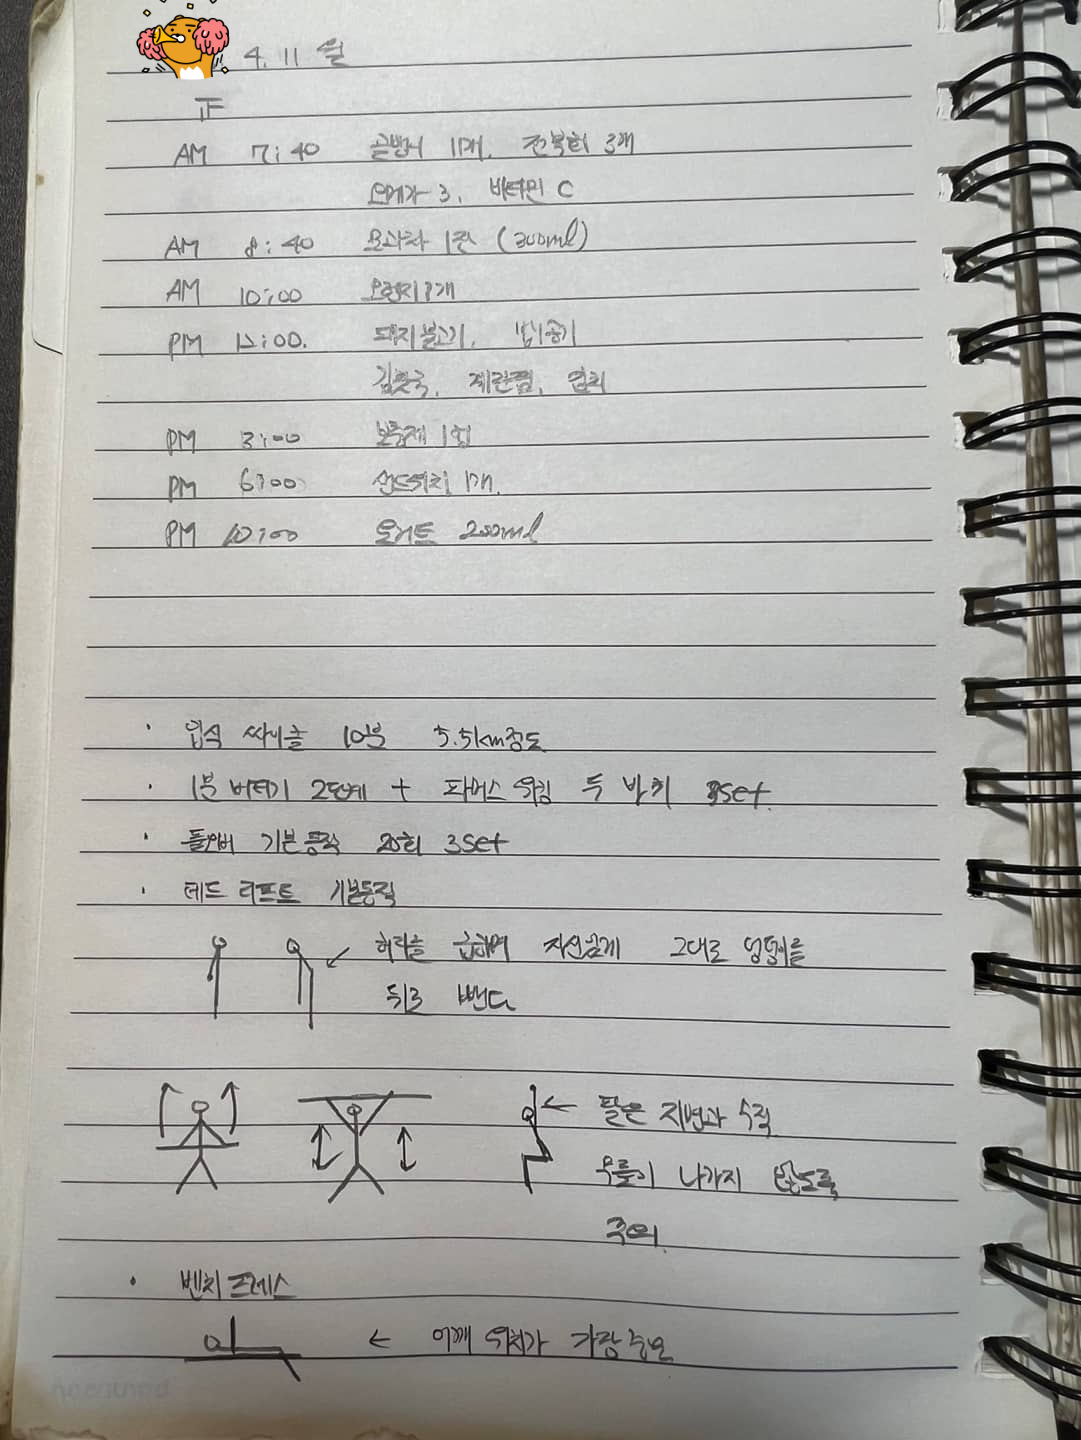 4. 11 월
正
AM 7:40 골뱅이 1개. 전복회 3개
오메가 3, 비타민 C
AM 8:40 모과차 1잔 (300ml)
AM 10:00 오렌지 1개
PM 12:00. 돼지불고기, 밥1공기
김칫국, 계란찜, 김치
PM 3:00 보충제 1컵
PM 6:00 샌드위치 1개.
PM 10:00 요거트 200ml
· 입식 싸이클 10분 5.5km정도
· 1분 버티기 2단계 + 파머스 워킹 두 바퀴 3set
· 돌연버 기본동작 20회 3set
· 데드 리프트 기본동작
허리를 굽히며 자연스럽게 그대로 엉덩이를
뒤로 뺀다
팔은 지면과 수직
무릎이 나가지 않도록
주의
· 벤치프레스
← 어깨 위치가 가장 중요